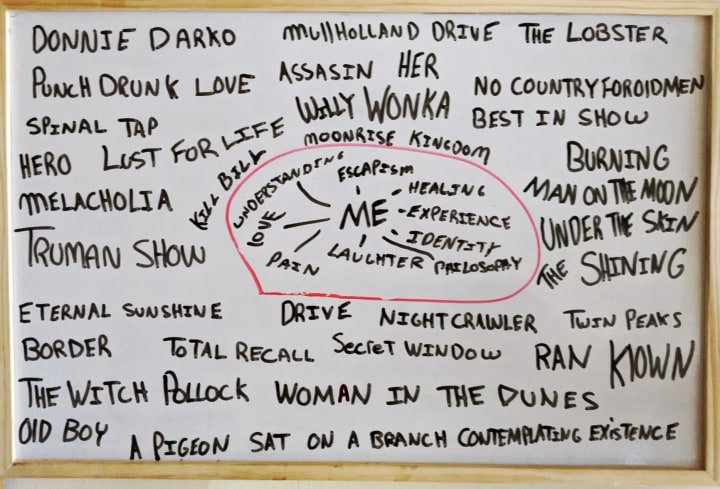 DONNIE DARKO
MULLHOLLAND DRIVE
THE LOBSTER
PUNCH DRUNK LOVE
ASSASIN
HER
NO COUNTRY FOR OLD MEN
SPINAL TAP
WILLY WONKA
BEST IN SHOW
HERO
LUST FOR LIFE
MOONRISE KINGDOM
BURNING
KILL BILL
MELACHOLIA
MAN ON THE MOON
TRUMAN SHOW
UNDER THE SKIN
THE SHINING
UNDERSTANDING
ESCAPISM
HEALING
LOVE
ME
EXPERIENCE
IDENTITY
PAIN
LAUGHTER
PHILOSOPHY
ETERNAL SUNSHINE
DRIVE
NIGHTCRAWLER
TWIN PEAKS
BORDER
TOTAL RECALL
SECRET WINDOW
RAN
KLOWN
THE WITCH
POLLOCK
WOMAN IN THE DUNES
OLD BOY
A PIGEON SAT ON A BRANCH CONTEMPLATING EXISTENCE